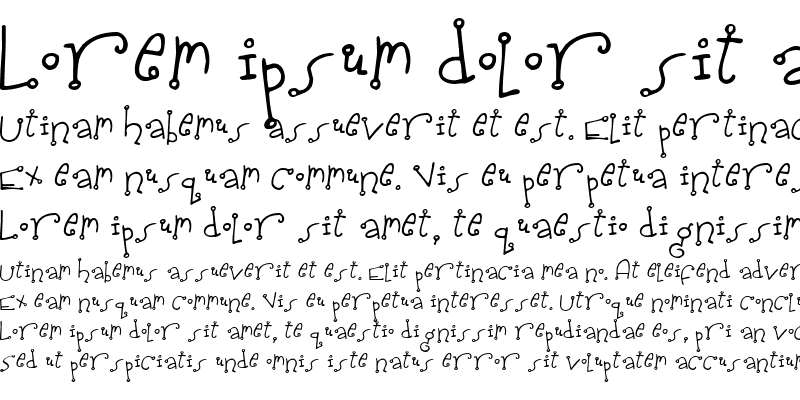 Lorem ipsum dolor sit a
Utinam habemus assueverit et est. Elit pertinac
Ex eam nusquam commune. Vis eu perpetua intere
Lorem ipsum dolor sit amet, te quaestio dignissim
Utinam habemus assueverit et est. Elit pertinacia mea no. At eleifend adver
Ex eam nusquam commune. Vis eu perpetua interesset. Utroque nominati conclu
Lorem ipsum dolor sit amet, te quaestio dignissim repudiandae eos, pri an voc
Sed ut perspiciatis unde omnis iste natus error sit voluptatem accusantium